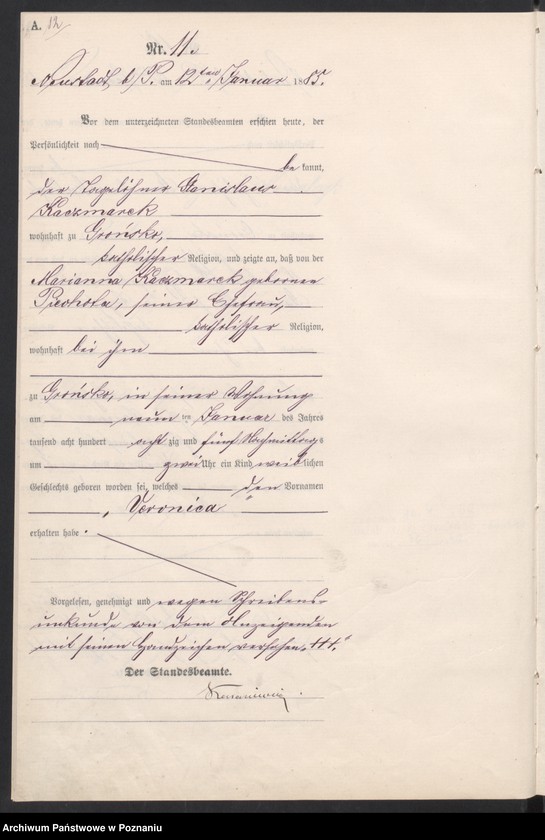 A. 12
Nr. 11.
Neustadt b/P. am 12ten Januar 1885.
Vor dem unterzeichneten Standesbeamten erschien heute, der
Persönlichkeit nach
be kannt,
der Tagelöhner Stanislaus
Kaczmarek
wohnhaft zu Grońsko,
katholischer Religion, und zeigte an, daß von der
Marianna Kaczmarek geborenen
Piechota, seiner Ehefrau,
katholischer Religion,
wohnhaft bei ihm
zu Grońsko, in seiner Wohnung
am neun ten Januar des Jahres
tausend acht hundert acht zig und fünf Nachmittags
um zwei Uhr ein Kind weib lichen
Geschlechts geboren worden sei, welches den Vornamen
, Veronica
erhalten habe.
Vorgelesen, genehmigt und wegen Schreibens-
unkunde von dem Anzeigenden
mit seinem Handzeichen versehen. +++
Der Standesbeamte.
Archiwum Państwowe w Poznaniu